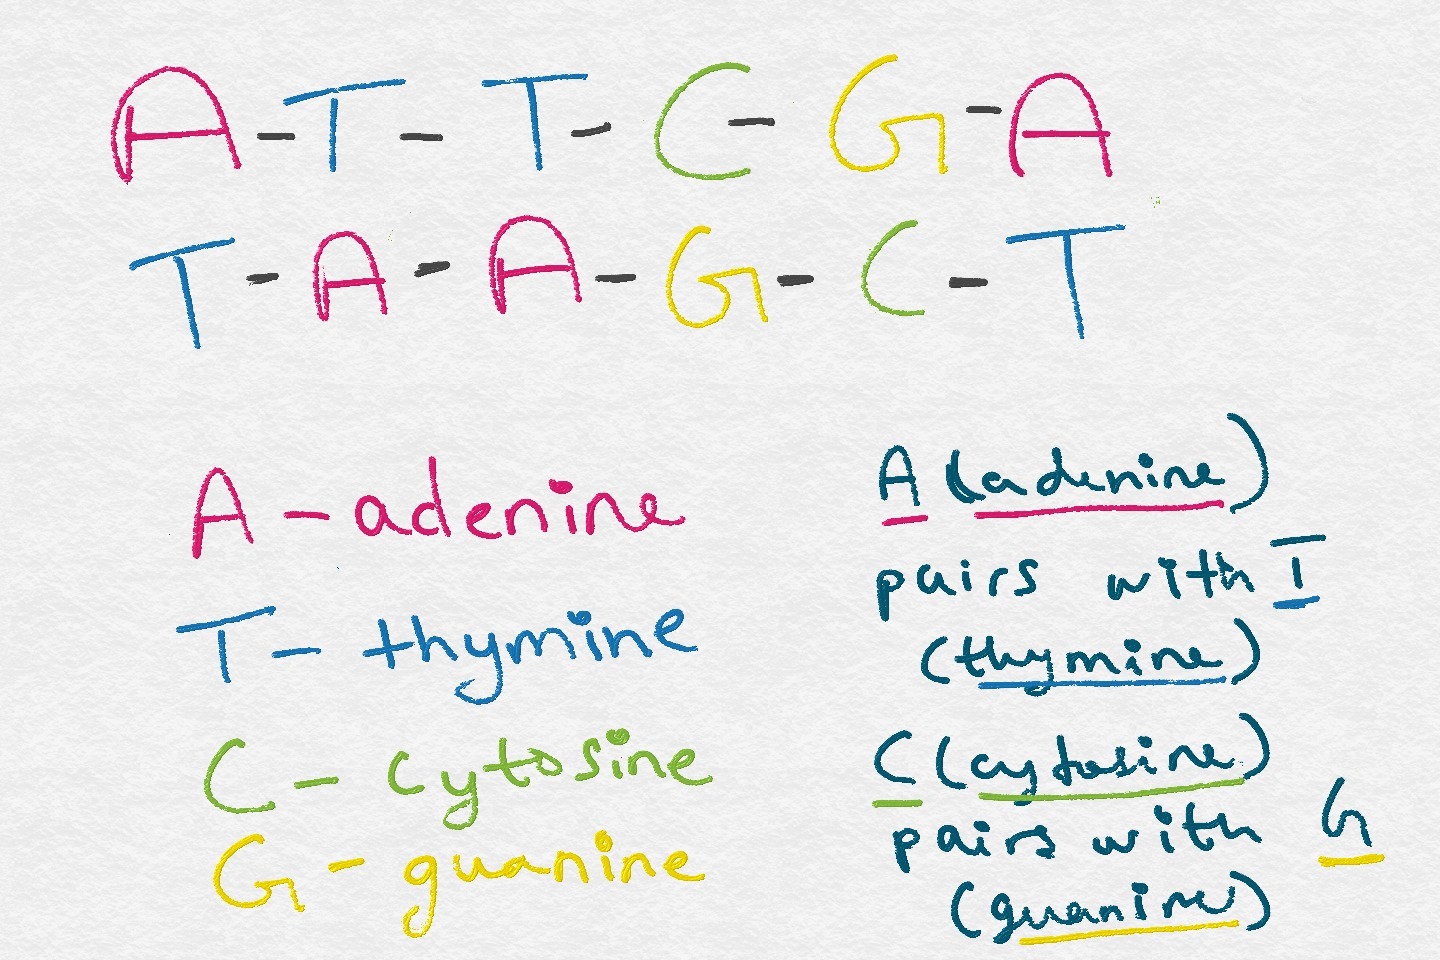 A - T - T - C - G - A
T - A - A - G - C - T
A - adenine
T - thymine
C - cytosine
G - guanine
A (adenine)
pairs with T
(thymine)
C (cytosine)
pairs with G
(guanine)